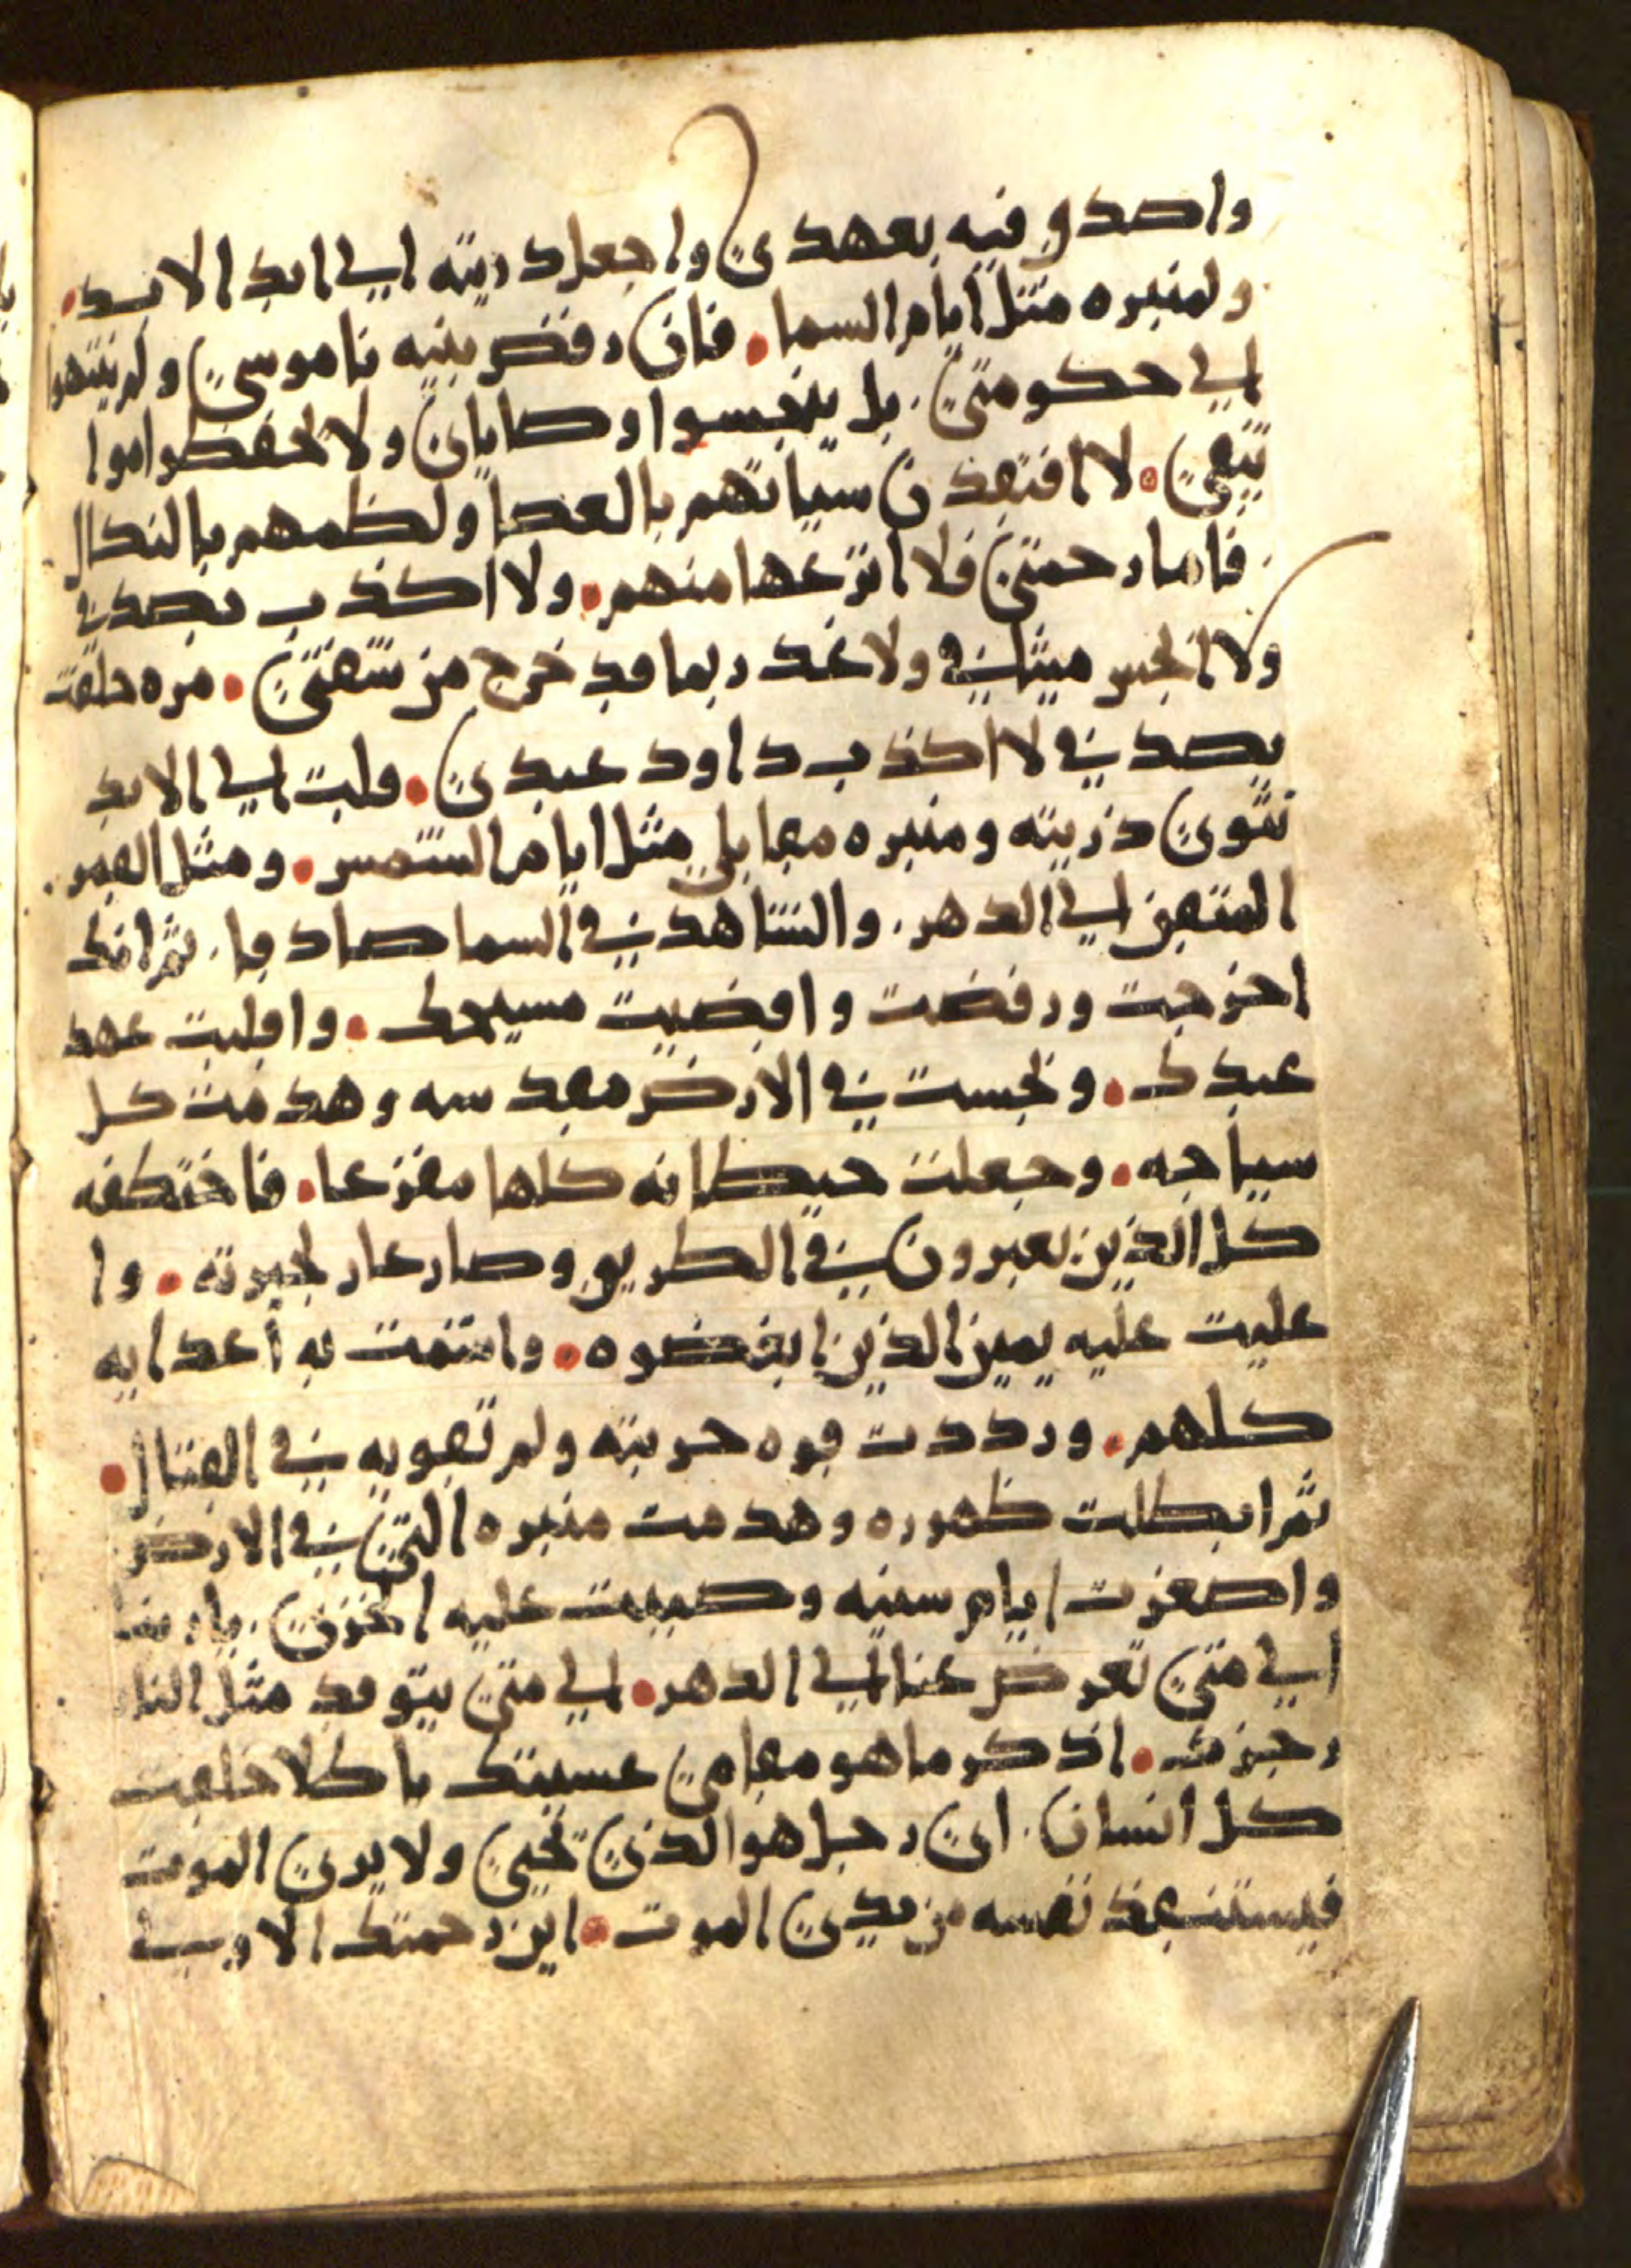 واصدق فيه بعهدي واجعل ذريته الي ابد الابد
ولمنبره مثل ايام السما فان رفض بنيه ناموسي ولم ينتهوا
الي حكومتي بل ينجسوا وصاياي ولا يحفظوا موا
ثيقي لا افتقدن سياتهم بالعصا ولظلمهم بالنكال
فاما رحمتي فلا انزعها منهم ولا اكذب بصدقي
ولا انجس ميثاقي ولا اغدر بما قد خرج من شفتي مره حلفت
بصدقي لا اكذب داود عبدي وليت الي الابد
تثوي ذريته ومنبره مقابلي مثل ايام الشمس ومثل القمر
المتقن الي الدهر والشاهد في السما صادقا ثم انك
اخرجت ورفضت واقضيت مسيحك واقلبت عهد
عبدك ونجست في الارض مقدسه وهدمت كل
سياجه وجعلت حيطانه كلها مفزعا فاختطفه
كل الذين يعبرون في الطريق وصار عار لجيرته وا
عليت عليه يمين الذين ابغضوه واشمت به اعدايه
كلهم ورددت قوه حربته ولم تقويه في القتال
ثم ابطلت ظهوره وهدمت منبره التي في الارض
واصغرت ايام سنيه وصببت عليه الخزي يا ربنا
الي متي تعرض عنا الي الدهر الي متي يتوقد مثل النار
رجزك اذكر ما هو مقامي عسيتك باطلا خلقت
كل انسان اي رجل هو الذي يحيي ولا يري الموت
فيستنقذ نفسه من يدي الموت اين رحمتك الاولي